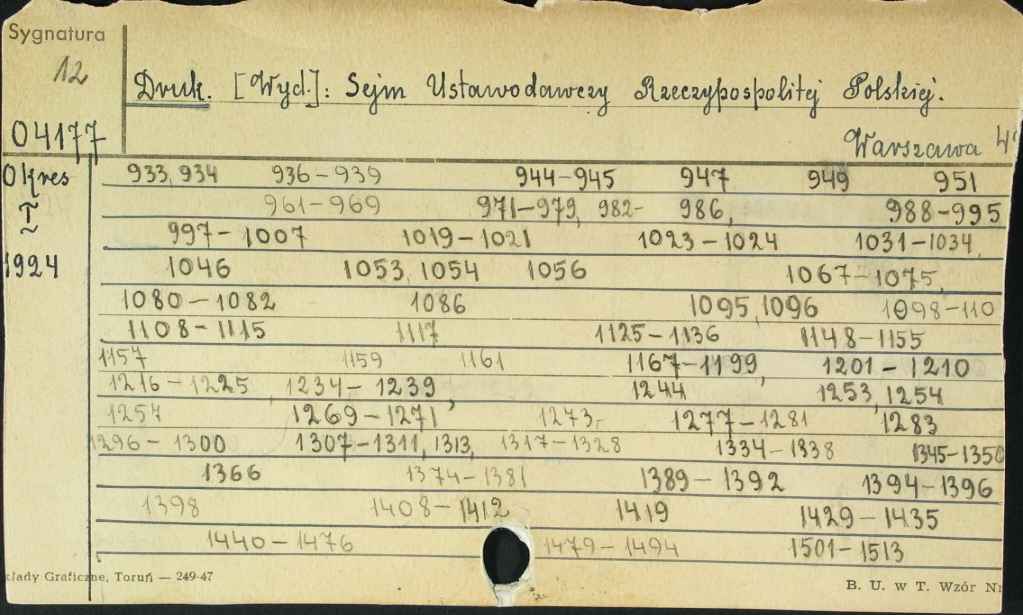 Sygnatura
12
Druk. [Wyd.]: Sejm Ustawodawczy Rzeczypospolitej Polskiej.
04177
Warszawa 4°
Okres
I
1924
933, 934 936-939 944-945 947 949 951
961-969 971-979, 982- 986, 988-995
997-1007 1019-1021 1023-1024 1031-1034,
1046 1053, 1054 1056 1067-1075,
1080-1082 1086 1095, 1096 1098-110
1108-1115 1117 1125-1136 1148-1155
1157 1159 1161 1167-1199, 1201-1210
1216-1225, 1234-1239, 1244 1253, 1254
1257 1269-1271 1273- 1277-1281 1283
1296-1300 1307-1311, 1313, 1317-1328 1334-1338 1345-1350
1366 1374-1381 1389-1392 1394-1396
1398 1408-1412 1419 1429-1435
1440-1476 1479-1494 1501-1513
kłady Graficzne, Toruń — 249-47
B. U. w T. Wzór Nr